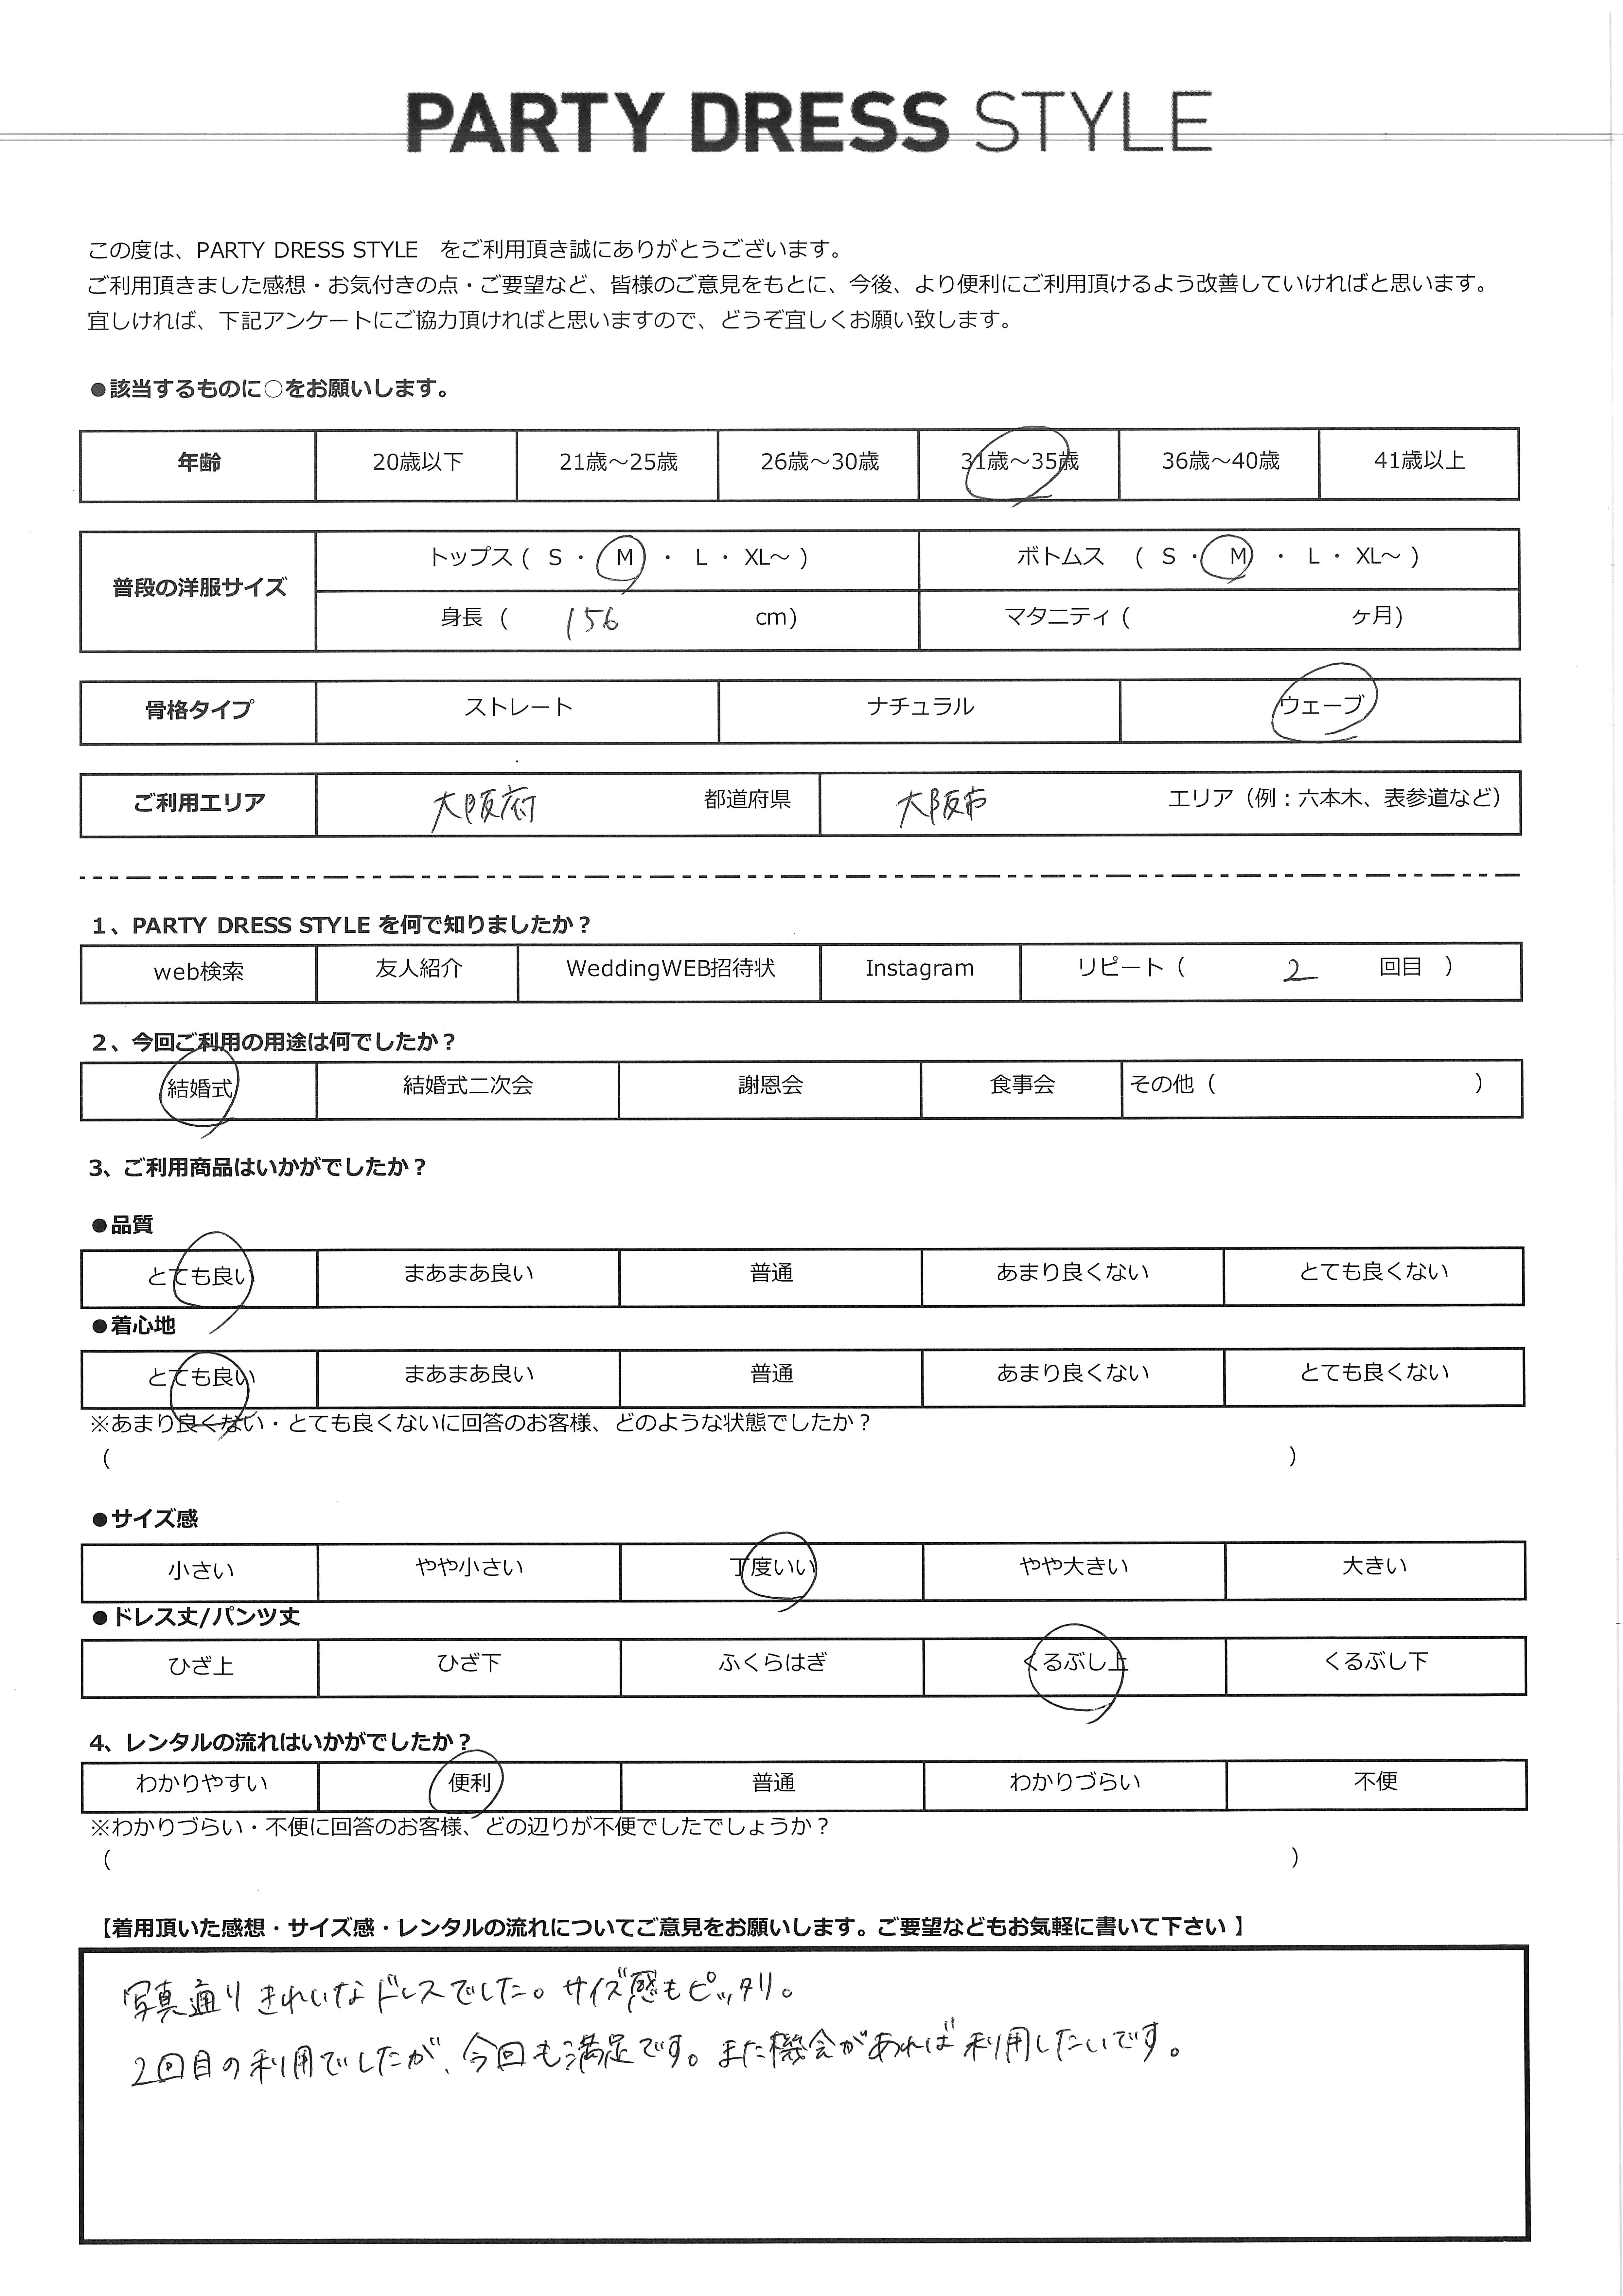 PARTY DRESS STYLE
この度は、PARTY DRESS STYLE　をご利用頂き誠にありがとうございます。
ご利用頂きました感想・お気付きの点・ご要望など、皆様のご意見をもとに、今後、より便利にご利用頂けるよう改善していければと思います。
宜しければ、下記アンケートにご協力頂ければと思いますので、どうぞ宜しくお願い致します。
●該当するものに○をお願いします。
年齢 20歳以下 21歳～25歳 26歳～30歳 31歳～35歳 36歳～40歳 41歳以上
普段の洋服サイズ
トップス ( S ・ M ・ L ・ XL～ ) ボトムス ( S ・ M ・ L ・ XL～ )
身長 ( 156 cm) マタニティ ( ヶ月)
骨格タイプ ストレート ナチュラル ウェーブ
ご利用エリア 大阪府 都道府県 大阪市 エリア（例：六本木、表参道など）
1、PARTY DRESS STYLE を何で知りましたか？
web検索 友人紹介 WeddingWEB招待状 Instagram リピート（ 2 回目 ）
2、今回ご利用の用途は何でしたか？
結婚式 結婚式二次会 謝恩会 食事会 その他（ ）
3、ご利用商品はいかがでしたか？
●品質
とても良い まあまあ良い 普通 あまり良くない とても良くない
●着心地
とても良い まあまあ良い 普通 あまり良くない とても良くない
※あまり良くない・とても良くないに回答のお客様、どのような状態でしたか？
（ ）
●サイズ感
小さい やや小さい 丁度いい やや大きい 大きい
●ドレス丈/パンツ丈
ひざ上 ひざ下 ふくらはぎ くるぶし上 くるぶし下
4、レンタルの流れはいかがでしたか？
わかりやすい 便利 普通 わかりづらい 不便
※わかりづらい・不便に回答のお客様、どの辺りが不便でしたでしょうか？
（ ）
【着用頂いた感想・サイズ感・レンタルの流れについてご意見をお願いします。ご要望などもお気軽に書いて下さい 】
写真通りきれいなドレスでした。サイズ感もピッタリ。
2回目の利用でしたが、今回も満足です。また機会があれば利用したいです。